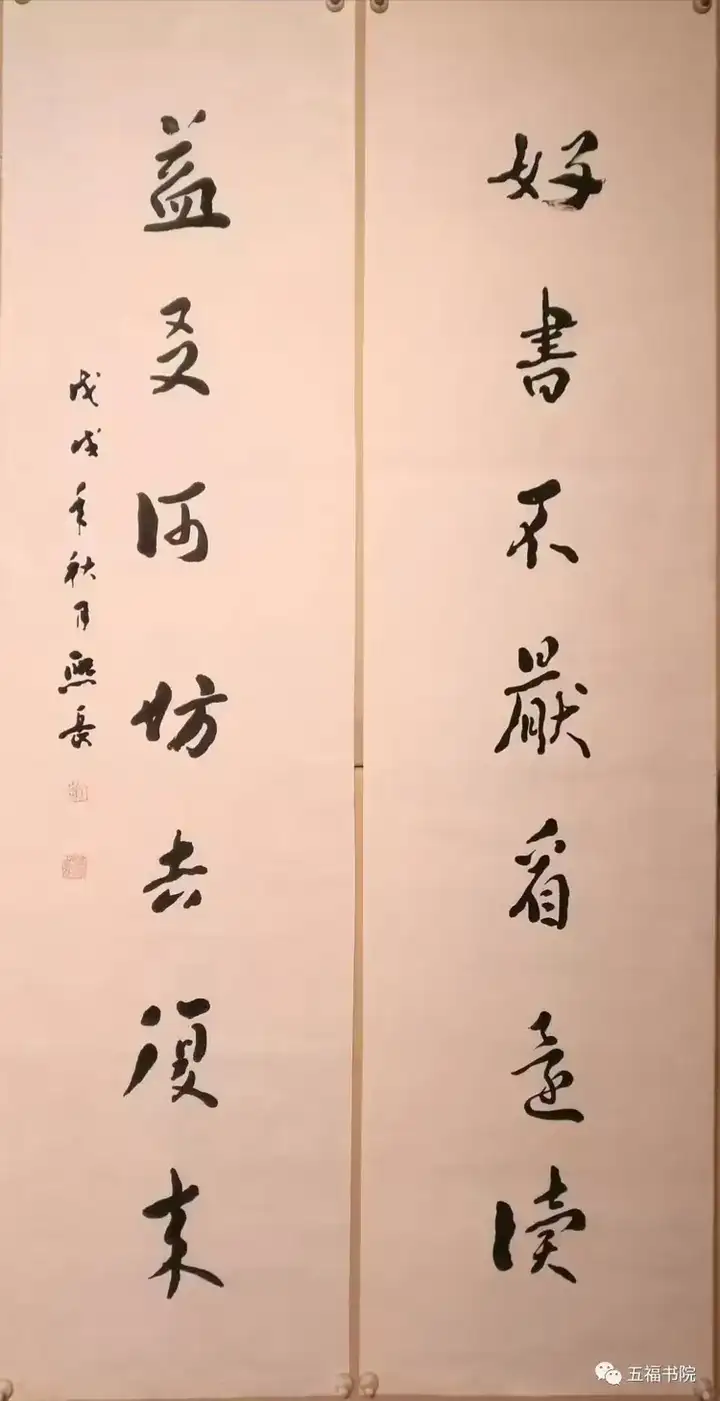 好書不厭看還讀
益友何妨去復来
戊戌年秋月熙長
五福书院